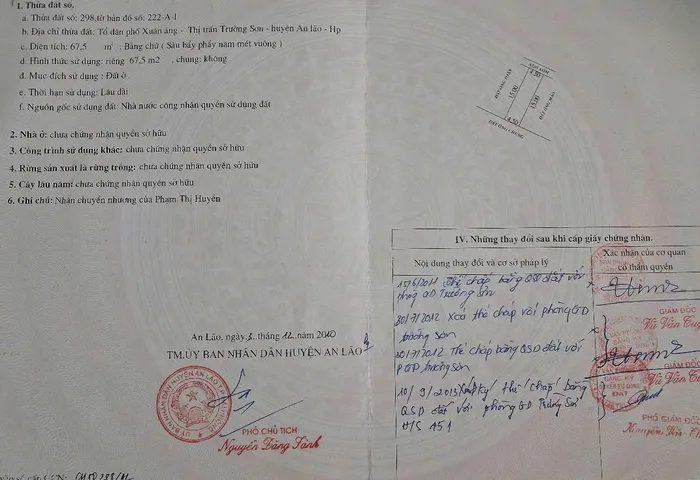 1. Thửa đất số.
a. Thửa đất số: 298, tờ bản đồ số: 222-A-I
b. Địa chỉ thửa đất: Tổ dân phố Xuân áng - Thị trấn Trường Sơn - huyện An lão - Hp
c. Diện tích: 67,5 m². Bằng chữ ( Sáu bẩy phẩy năm mét vuông )
d. Hình thức sử dụng: riêng 67,5 m2 , chung: không
d. Mục đích sử dụng : Đất ở
e. Thời hạn sử dụng: Lâu dài
f. Nguồn gốc sử dụng đất: Nhà nước công nhận quyền sử dụng đất
2. Nhà ở: chưa chứng nhận quyền sở hữu
3. Công trình sử dụng khác: chưa chứng nhận quyền sở hữu
4. Rừng sản xuất là rừng trồng: chưa chứng nhận quyền sở hữu
5. Cây lâu năm: chưa chứng nhận quyền sở hữu
6. Ghi chú: Nhận chuyển nhượng của Phạm Thị Huyền
An Lão, ngày 3 tháng 12 năm 2010
TM.ỦY BAN NHÂN DÂN HUYỆN AN LÃO
PHÓ CHỦ TỊCH
Nguyễn Đăng Tành
4.50
15.00
15.00
4.50
IV. Những thay đổi sau khi cấp giấy chứng nhận.
Nội dung thay đổi và cơ sở pháp lý
Xác nhận của cơ quan
có thẩm quyền
15/6/2011 Thế chấp bằng QSD đất với
phòng GD Trường Sơn
30/7/2012 Xoá thế chấp với phòng GD
trường sơn
30/7/2012 Thế chấp bằng QSD đất với
PGD trường sơn
10/9/2013 ký thế chấp bằng
QSD đất với phòng GD Trường Sơn
H/S 451
GIÁM ĐỐC
Vũ Văn
GIÁM ĐỐC
Vũ Văn
ĐĂNG KÝ
QUYỀN SỬ DỤNG
ĐẤT
PHÓ GIÁM ĐỐC
Nguyễn